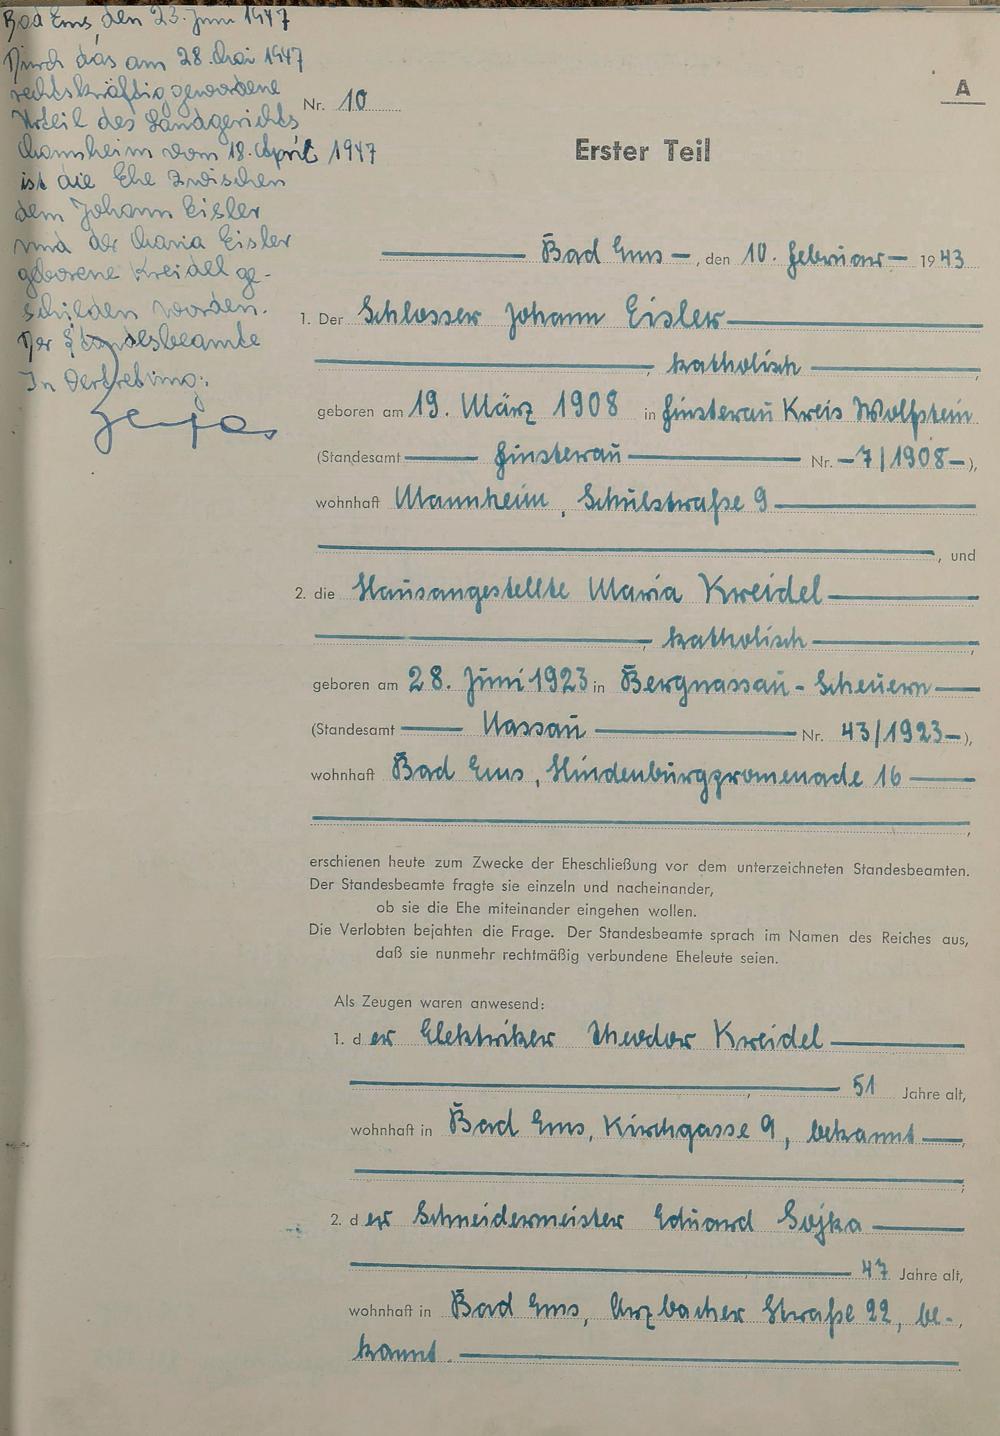 Bad Ems, den 23. Juni 1947
Durch das am 28. Mai 1947
rechtskräftig gewordene
Urteil des Landgerichts
Mannheim vom 18. April 1947
ist die Ehe zwischen
dem Johann Eisler
und der Maria Eisler
geborene Kreidel ge-
schieden worden.
Der Standesbeamte
In Vertretung:
A
Nr. 10
Erster Teil
Bad Ems, den 10. Februar 1943
1. Der Schlosser Johann Eisler
, katholisch,
geboren am 19. März 1908 in Finsterau Kreis Wolfstein
(Standesamt Finsterau Nr. 7/1908),
wohnhaft Mannheim, Schulstraße 9
, und
2. die Hausangestellte Maria Kreidel
, katholisch,
geboren am 28. Juni 1923 in Bergnassau-Scheuern
(Standesamt Nassau Nr. 43/1923),
wohnhaft Bad Ems, Hindenburgpromenade 16
,
erschienen heute zum Zwecke der Eheschließung vor dem unterzeichneten Standesbeamten.
Der Standesbeamte fragte sie einzeln und nacheinander,
ob sie die Ehe miteinander eingehen wollen.
Die Verlobten bejahten die Frage. Der Standesbeamte sprach im Namen des Reiches aus,
daß sie nunmehr rechtmäßig verbundene Eheleute seien.
Als Zeugen waren anwesend:
1. der Elektriker Theodor Kreidel
, 51 Jahre alt,
wohnhaft in Bad Ems, Kirchgasse 9, bekannt,
;
2. der Schneidermeister Eduard Sojka
, 47 Jahre alt,
wohnhaft in Bad Ems, Arzbacher Straße 22, be-,
kannt.